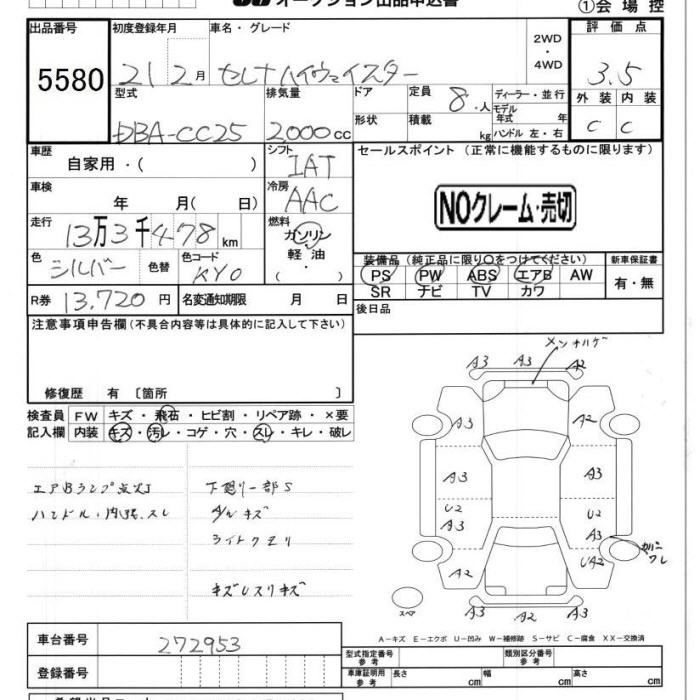 オークション出品申込書
①会場控
出品番号 5580
初度登録年月 21 2月
車名・グレード セレナハイウェイスター
2WD ・ 4WD
評価点 3.5
外装 C 内装 C
型式 DBA-CC25
排気量 2000cc
ドア
形状
定員 8人
積載 kg
ディーラー・並行
モデル年式 年
ハンドル 左・右
車歴 自家用・( )
シフト IAT
セールスポイント (正常に機能するものに限ります)
NOクレーム・売切
車検 年 月( 日)
冷房 AAC
走行 13万3千478km
燃料 ガソリン 軽油 ・( )
色 シルバー 色替
色コード KY0
装備品 (純正品に限り○をつけてください) 新車保証書
PS PW ABS エアB AW 有・無
SR ナビ TV カワ
R券 13,720円 名変通知期限 月 日
後日品
注意事項申告欄(不具合内容等は具体的に記入して下さい)
修復歴 有 〔箇所 〕
検査員 FW キズ・飛石・ヒビ割・リペア跡・×要
記入欄 内装 キズ・汚レ・コゲ・穴・スレ・キレ・破レ
エアBランプ点灯
下廻り一部S
アルキズ
ライトクモリ
A3 A3 A2
A3 A2
A3 A3
U2 U2
A3 A3
A2 UA2
A3 A2 A3
スペア
A-キズ E-エクボ U-凹み W-補修跡 S-サビ C-腐食 XX-交換済
車台番号 272953
登録番号
型式指定番号 参考
類別区分番号 参考
車庫証明用 参考 長さ cm 幅 cm 高さ cm